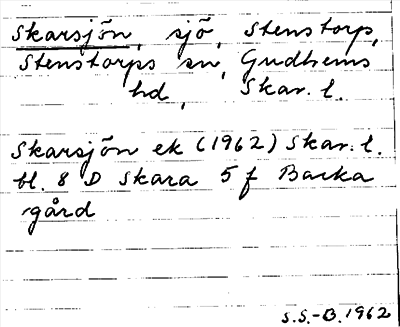 Skarsjön, sjö, Stenstorp,
Stenstorps sn, Gudhems
hd, Skar. l.
Skarsjön ek (1962) Skar. l.
bl. 8 D Skara 5 f Backa
gård
S.S.-B. 1962